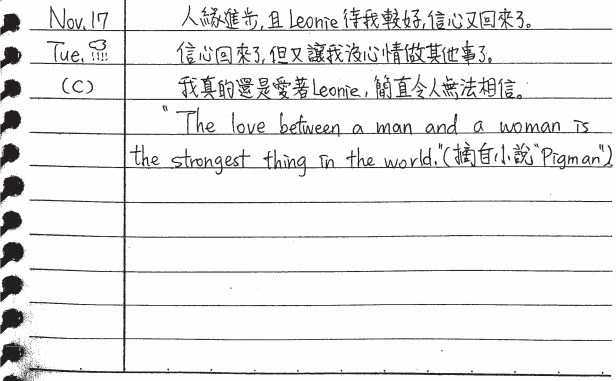 Nov. 17 人緣進步,且Leonie待我較好,信心又回來了。
Tue. 信心回來了,但又讓我沒心情做其他事了。
(C) 我真的還是愛著Leonie,簡直令人無法相信。
"The love between a man and a woman is
the strongest thing in the world."(摘自小說"Pigman")